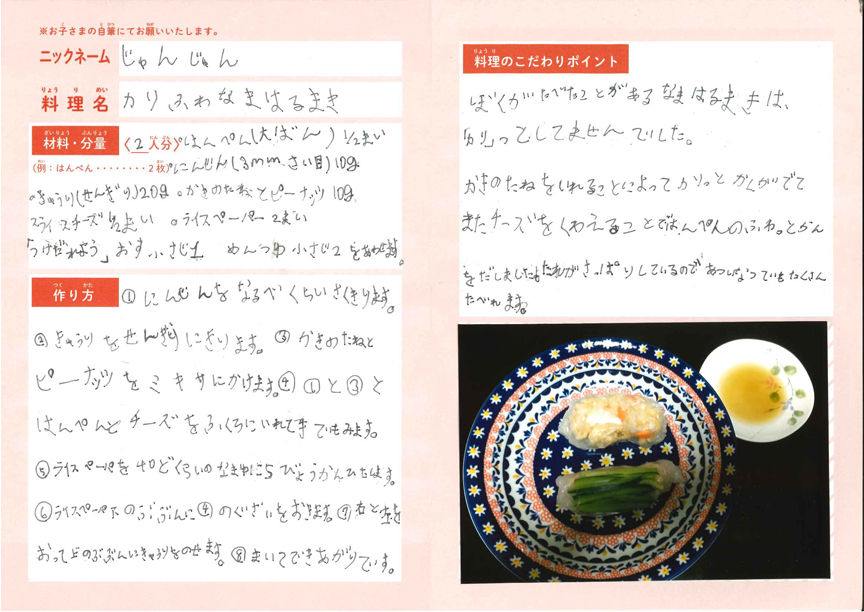 ※お子さまの自筆にてお願いいたします。
ニックネーム じゅんじゅん
料理名 カリふわなまはるまき
材料・分量 〈2人分〉 ◦はんぺん(大ばん) 1/2まい
(例:はんぺん・・・・・・・・2枚) ◦にんじん(3mmさい目)10g
◦きゅうり(せんぎり)20g ◦かきのたねとピーナッツ 10g
スライスチーズ まい ◦ライスペーパー 2まい
「つけだれよう」 おす小さじ1 めんつゆ小さじ2をあわせます。
作り方 ①にんじんをなるべくちいさくきります。
②きゅうりをせん切りにきります。③かきのたねと
ピーナッツをミキサにかけます。④①と③と
はんぺんとチーズをふくろにいれててでもみます。
⑤ライスペーパを40どくらいのなまゆに5びょうかんひたします。
⑥ライスペーパ下のぶぶんに④のぐざいをおきます。⑦右と左を
おって上のぶぶんにきゅうりをのせます。⑧まいてできあがりです。
料理のこだわりポイント
ぼくがたべたことがあるなまはるまきは、
カリっとしてませんでした。
かきのたねをいれることによってカリっとかんがでて
またチーズをくわえることではんぺんのふわっとかん
をだしましたたれがさっぱりしているのであついなつでもたくさん
たべれます。